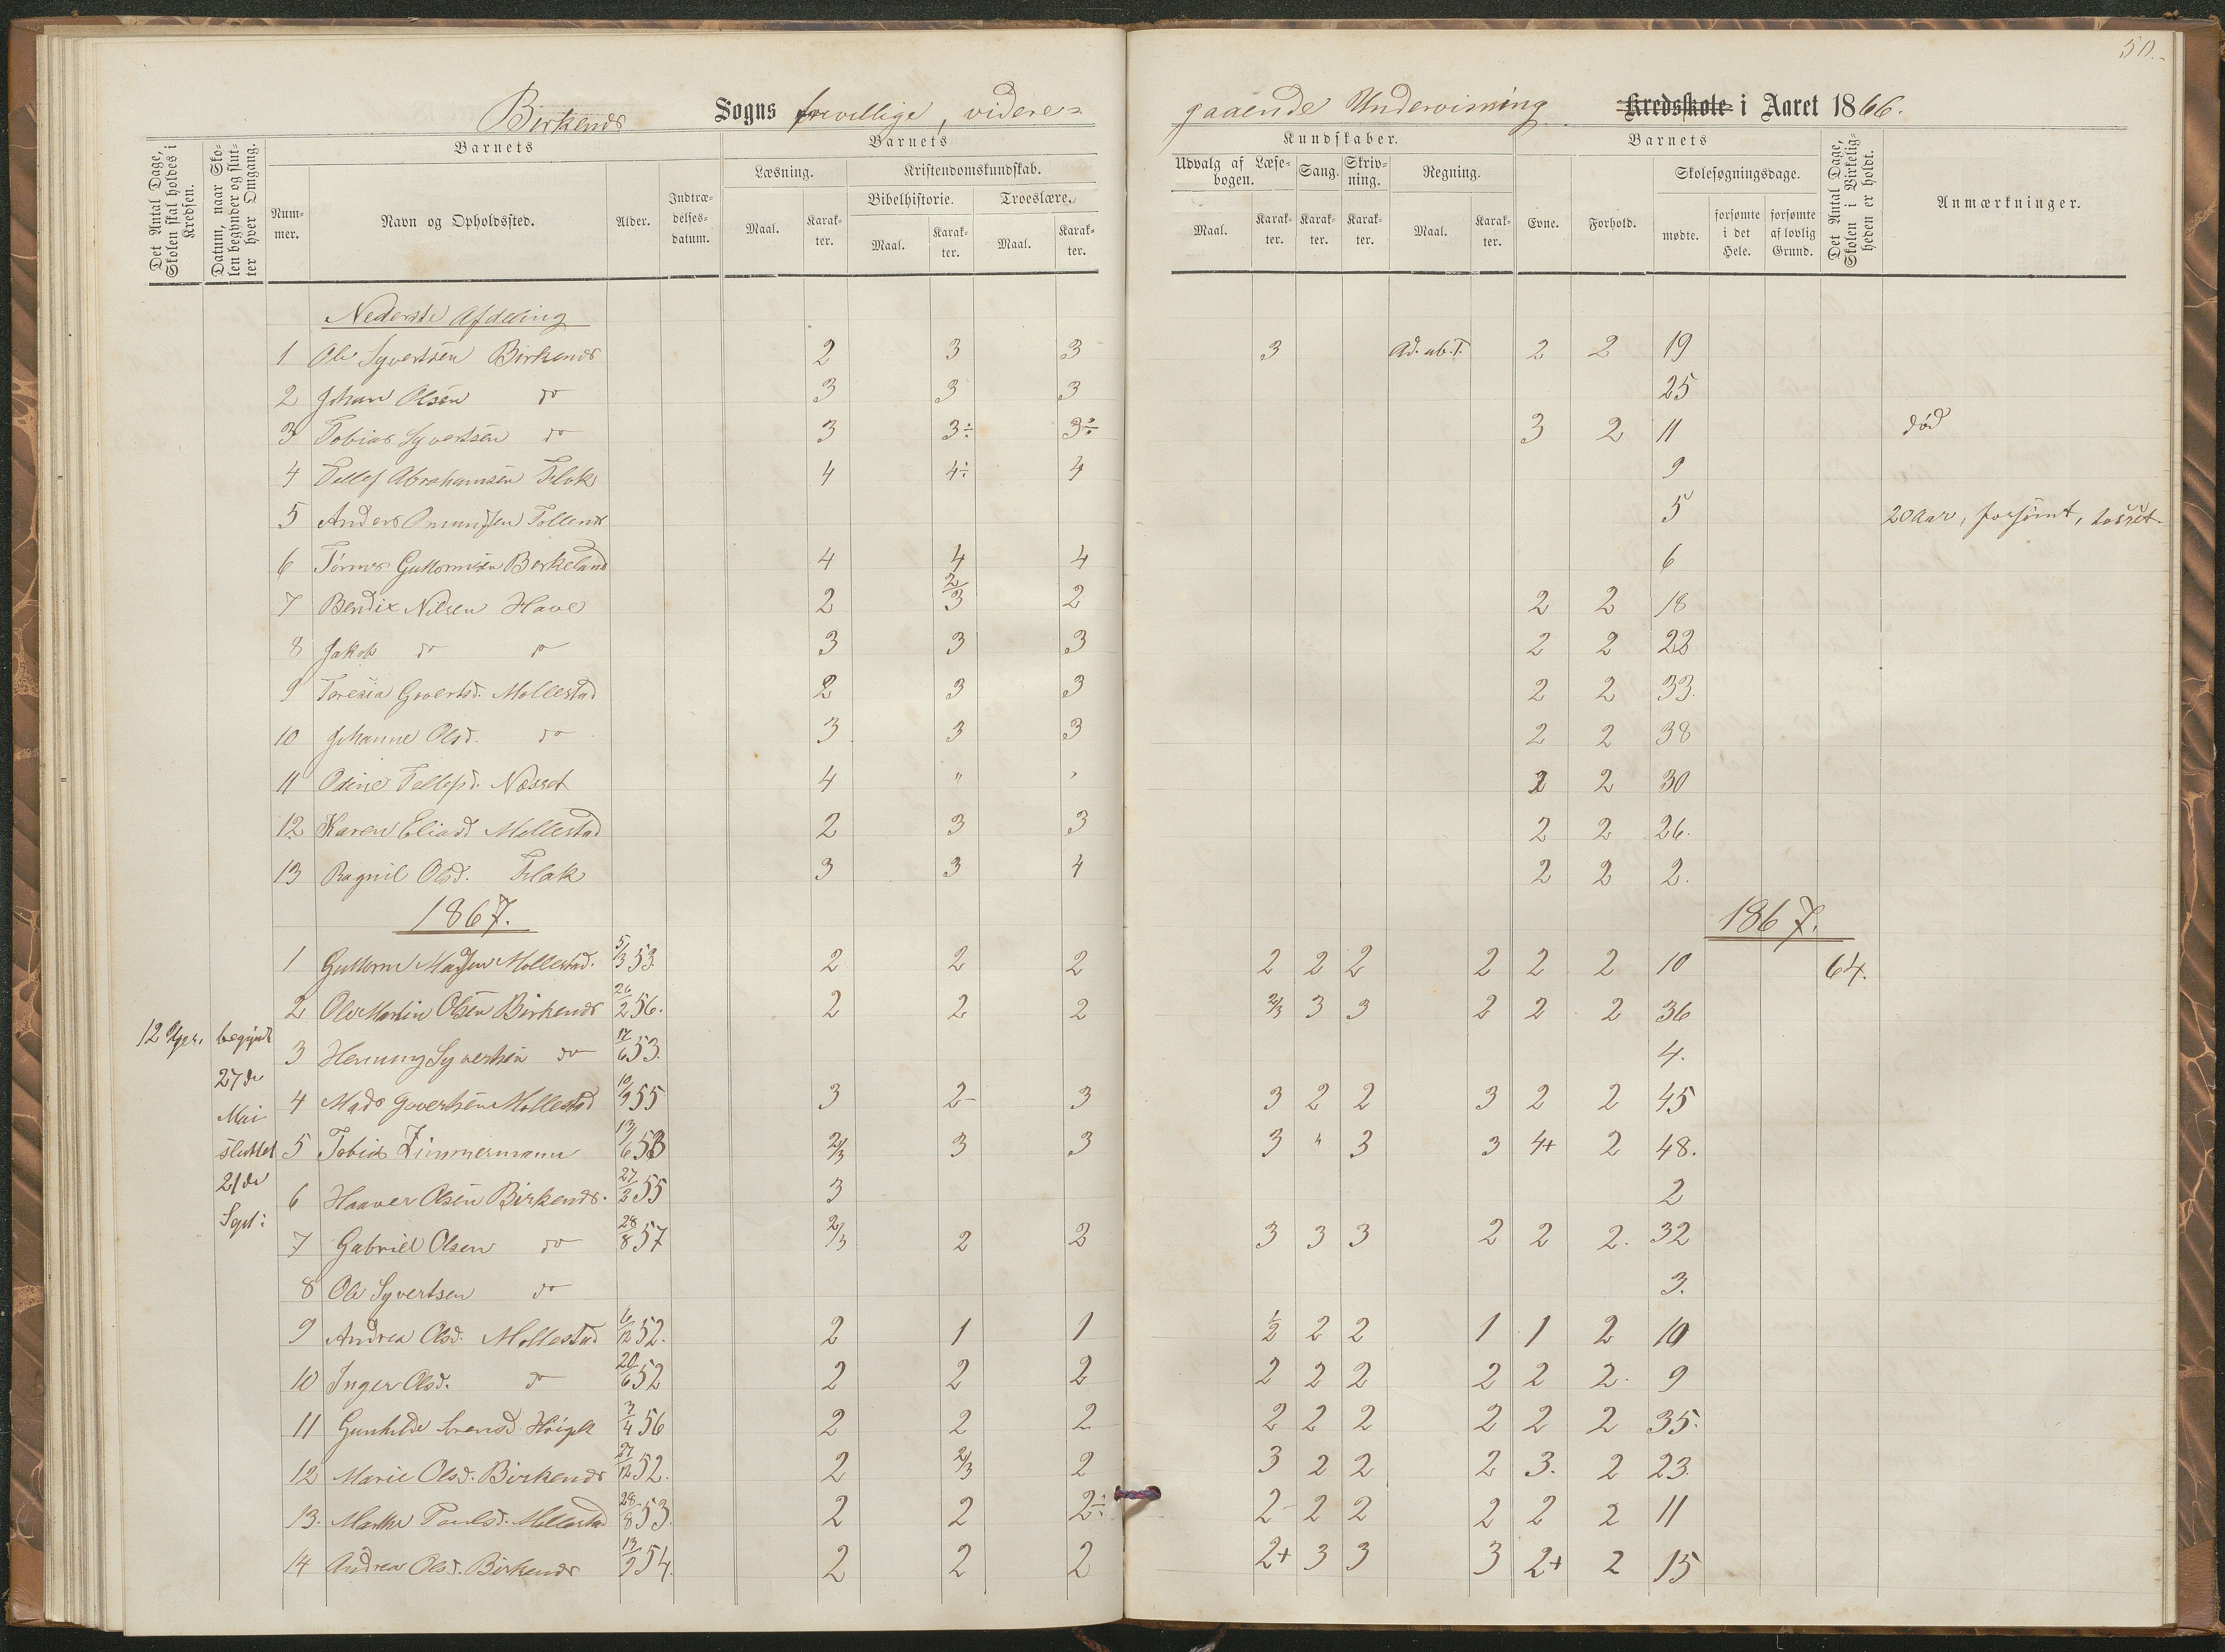 50.
Birkenes Sogns frivillige, videre=
gaaende Undervisning Kredsskole i Aaret 1866.
Det Antal Dage, Skolen skal holdes i Kredsen.
Datum, naar Skolen begynder og slutter hver Omgang.
Barnets
Nummer.
Navn og Opholdssted.
Alder.
Indtrædelsesdatum.
Barnets
Læsning.
Maal.
Karakter.
Kristendomskundskab.
Bibelhistorie.
Maal.
Karakter.
Troeslære.
Maal.
Karakter.
Kundskaber.
Udvalg af Læsebogen.
Maal.
Karakter.
Sang.
Karakter.
Skrivning.
Karakter.
Regning.
Maal.
Karakter.
Barnets
Evne.
Forhold.
Skolesøgningsdage.
mødte.
forsømte i det Hele.
forsømte af lovlig Grund.
Det Antal Dage, Skolen i Virkeligheden er holdt.
Anmærkninger.
Nederste Afdeling
1 Ole Syvertsen Birkenes 2 3 3 3 Ad. ub. T. 2 2 19
2 Johan Olsen do 3 3 3 25
3 Tobias Syvertsen do 3 3÷ 3÷ 3 2 11 død
4 Tellef Abrahamsen Flak 4 4÷ 4 9
5 Anders 5 20 Aar, forsømt, tosset.
6 Guttormsen Birkeland 4 4 4 6
7 Bendix Nilsen Have 2 2/3 2 2 2 18
8 Jakob do do 3 3 3 2 2 22
9 Teresia Govertsd. Mollestad 2 3 3 2 2 33.
10 Johanne Olsd. do 3 3 3 2 2 38
11 Odine Tellefsd. Næsset 4 " " 2 2 30
12 Karen Eliasd Mollestad 2 3 3 2 2 26.
13 Ragnil Olsd. Flak 3 3 4 2 2 2.
1867. 1867.
1 Guttorm Madsen Mollestad. 5/3 53. 2 2 2 2 2 2 2 2 2 10 64.
2 Ole Martin Olsen Birkenes 26/2 56. 2 2 2 2/3 3 3 2 2 2 36
12 Uger. begyndt 27de Mai sluttet 21de Sept:
3 Henning Syvertsen do 17/6 53. 4.
4 Mads Govertsen Mollestad 10/9 55 3 2- 3 3 2 2 3 2 2 45
5 Tobias Zimmermann 13/6 53 2/3 3 3 3 " 3 3 4+ 2 48.
6 Haaver Olsen Birkenes. 27/2 55 3 2
7 Gabriel Olsen do 28/8 57 2/3 2 2 3 3 3 2 2 2. 32
8 Ole Syvertsen do 3.
9 Andrea Olsd. Mollestad 6/12 52. 2 1 1 1/2 2 2 1 1 2 10
10 Inger Olsd. do 20/6 52 2 2 2 2 2 2 2 2 2. 9
11 Gunhilde 3/4 56 2 2 2 2 2 2 2 2 2 35.
12 Marie Olsd. Birkenes 27/12 52. 2 2/3 2 3 2 2 2 3. 2 23.
13. Marthe Mollestad 28/8 53. 2 2 2÷ 2- 2 2 2 2 2 11
14 Andrea Olsd. Birkenes 13/9 54. 2 2 2 2+ 3 3 3 2+ 2 15